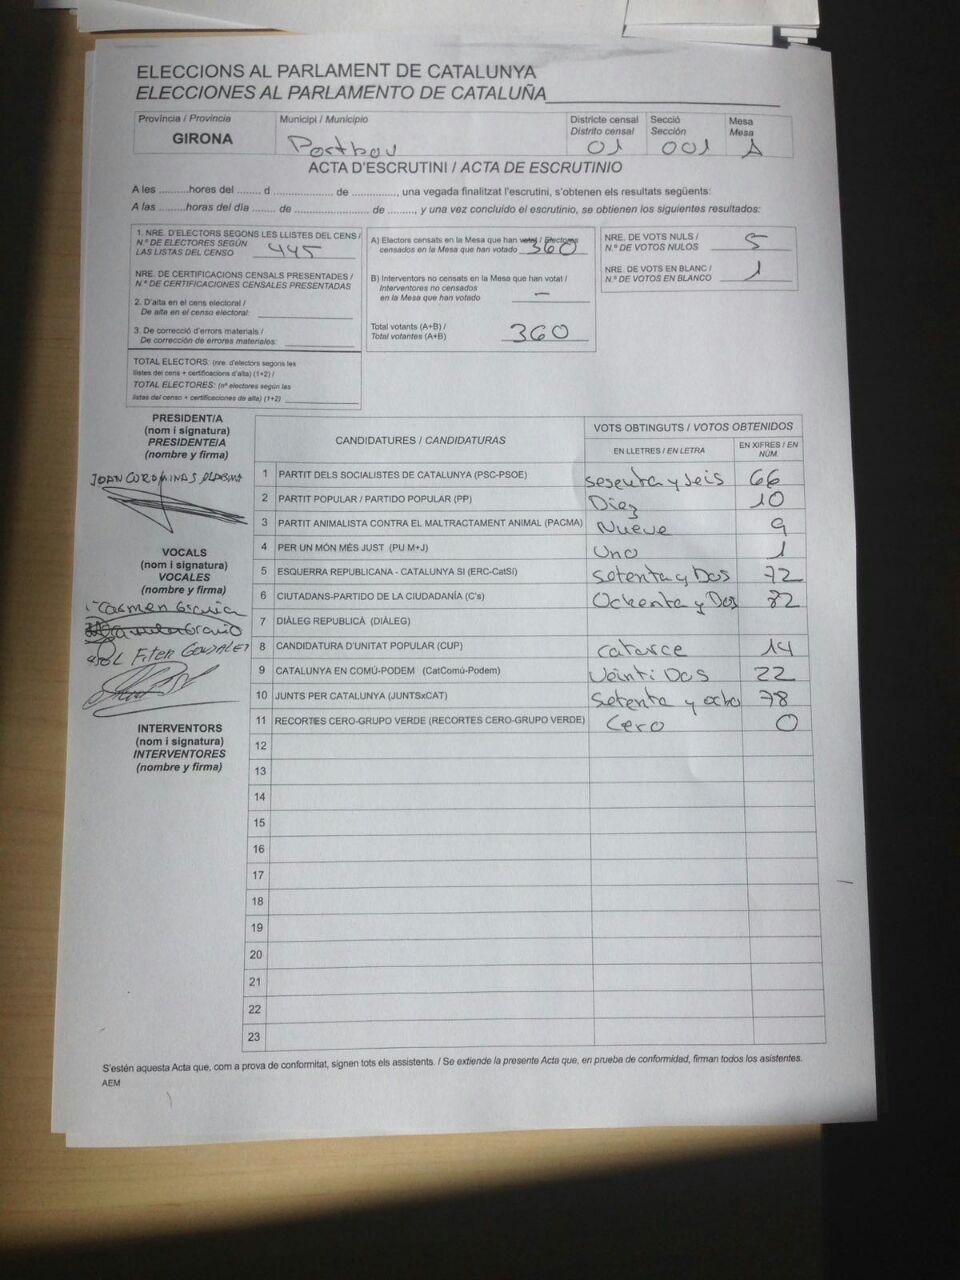 ELECCIONS AL PARLAMENT DE CATALUNYA
ELECCIONES AL PARLAMENTO DE CATALUÑA
Província / Provincia
GIRONA
Municipi / Municipio
Portbou
Districte censal
Distrito censal
01
Secció
Sección
001
Mesa
Mesa
A
ACTA D'ESCRUTINI / ACTA DE ESCRUTINIO
A les ..........hores del ....... d .................. de .............., una vegada finalitzat l'escrutini, s'obtenen els resultats següents:
A las .........horas del día ........ de ...................... de ........., y una vez concluido el escrutinio, se obtienen los siguientes resultados:
1. NRE. D'ELECTORS SEGONS LES LLISTES DEL CENS /
N.º DE ELECTORES SEGÚN
LAS LISTAS DEL CENSO 445
NRE. DE CERTIFICACIONS CENSALS PRESENTADES /
N.º DE CERTIFICACIONES CENSALES PRESENTADAS
2. D'alta en el cens electoral /
De alta en el censo electoral:
3. De correcció d'errors materials /
De corrección de errores materiales:
TOTAL ELECTORS: (nre. d'electors segons les
llistes del cens + certificacions d'alta) (1+2) /
TOTAL ELECTORES: (nº electores según las
listas del censo + certificaciones de alta) (1+2)
A) Electors censats en la Mesa que han votat / Electores
censados en la Mesa que han votado 360
B) Interventors no censats en la Mesa que han votat /
Interventores no censados
en la Mesa que han votado –
Total votants (A+B) /
Total votantes (A+B) 360
NRE. DE VOTS NULS /
N.º DE VOTOS NULOS 5
NRE. DE VOTS EN BLANC /
N.º DE VOTOS EN BLANCO 1
PRESIDENT/A
(nom i signatura)
PRESIDENTE/A
(nombre y firma)
JOAN COROMINAS
VOCALS
(nom i signatura)
VOCALES
(nombre y firma)
Carmen
Fiter GONZALEZ
INTERVENTORS
(nom i signatura)
INTERVENTORES
(nombre y firma)
CANDIDATURES / CANDIDATURAS
VOTS OBTINGUTS / VOTOS OBTENIDOS
EN LLETRES / EN LETRA
EN XIFRES / EN NÚM.
1 PARTIT DELS SOCIALISTES DE CATALUNYA (PSC-PSOE) seseuta y seis 66
2 PARTIT POPULAR / PARTIDO POPULAR (PP) Diez 10
3 PARTIT ANIMALISTA CONTRA EL MALTRACTAMENT ANIMAL (PACMA) Nueve 9
4 PER UN MÓN MÉS JUST (PU M+J) Uno 1
5 ESQUERRA REPUBLICANA - CATALUNYA SÍ (ERC-CatSí) Setenta y Dos 72
6 CIUTADANS-PARTIDO DE LA CIUDADANÍA (C's) Ochenta y Dos 82
7 DIÀLEG REPUBLICÀ (DIÀLEG)
8 CANDIDATURA D'UNITAT POPULAR (CUP) Catorce 14
9 CATALUNYA EN COMÚ-PODEM (CatComú-Podem) Veinti Dos 22
10 JUNTS PER CATALUNYA (JUNTSxCAT) Setenta y ocho 78
11 RECORTES CERO-GRUPO VERDE (RECORTES CERO-GRUPO VERDE) Cero 0
12
13
14
15
16
17
18
19
20
21
22
23
S'estén aquesta Acta que, com a prova de conformitat, signen tots els assistents. / Se extiende la presente Acta que, en prueba de conformidad, firman todos los asistentes.
AEM